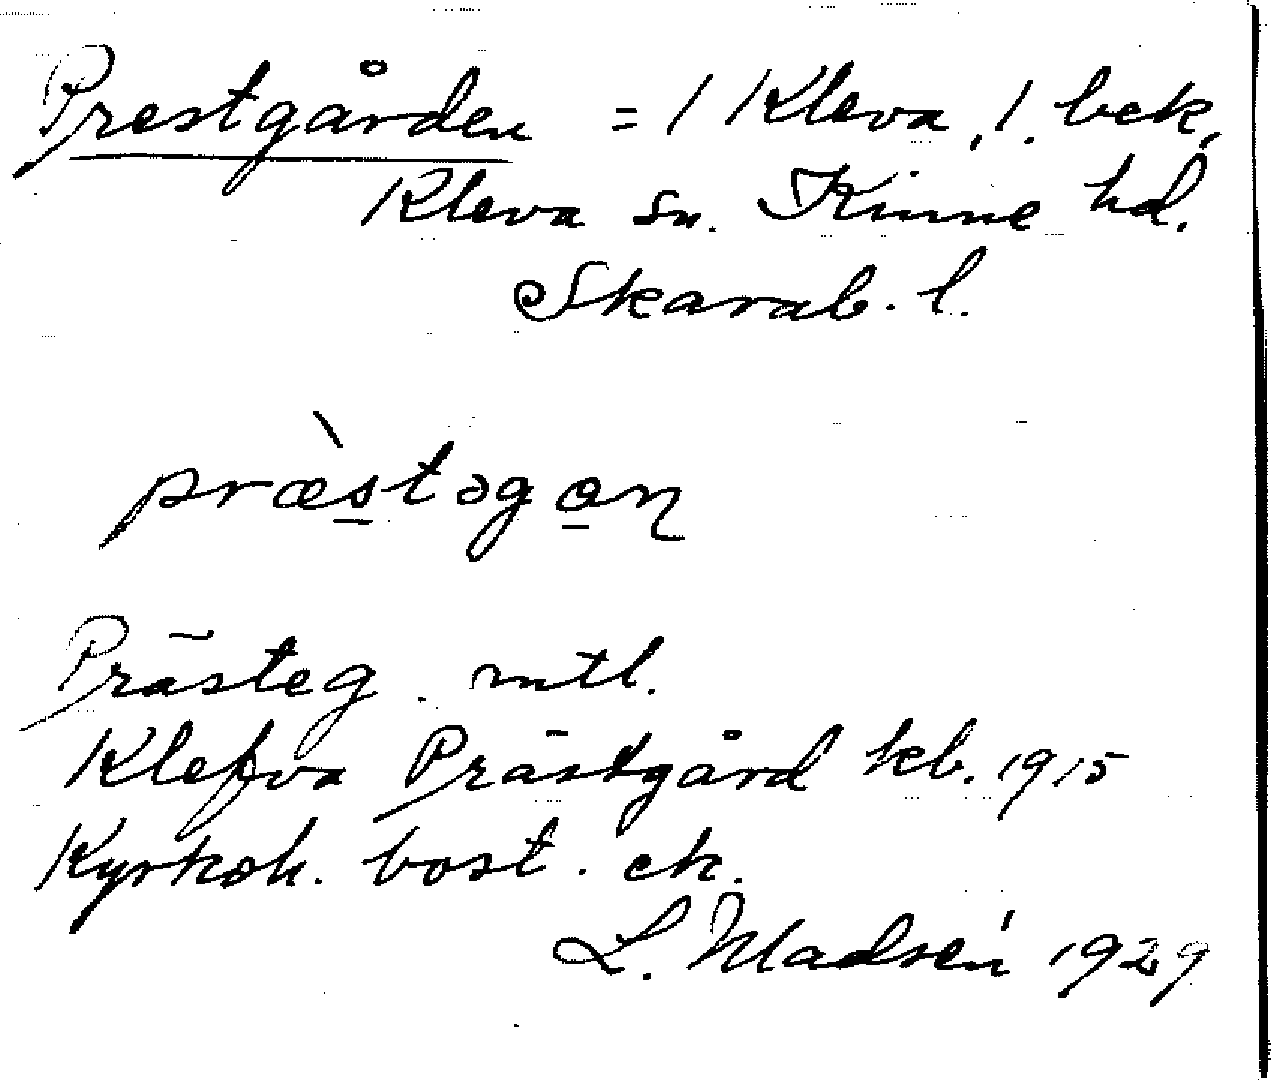 Prestgården = 1 Kleva, 1. bek,
Kleva sn. Kinne hd.
Skarab. l.
præ̀stəgan
Prästeg. mtl.
Klefva Prästgård kb. 1915
Kyrkoh. bost. ek.
L. Madsén 1929